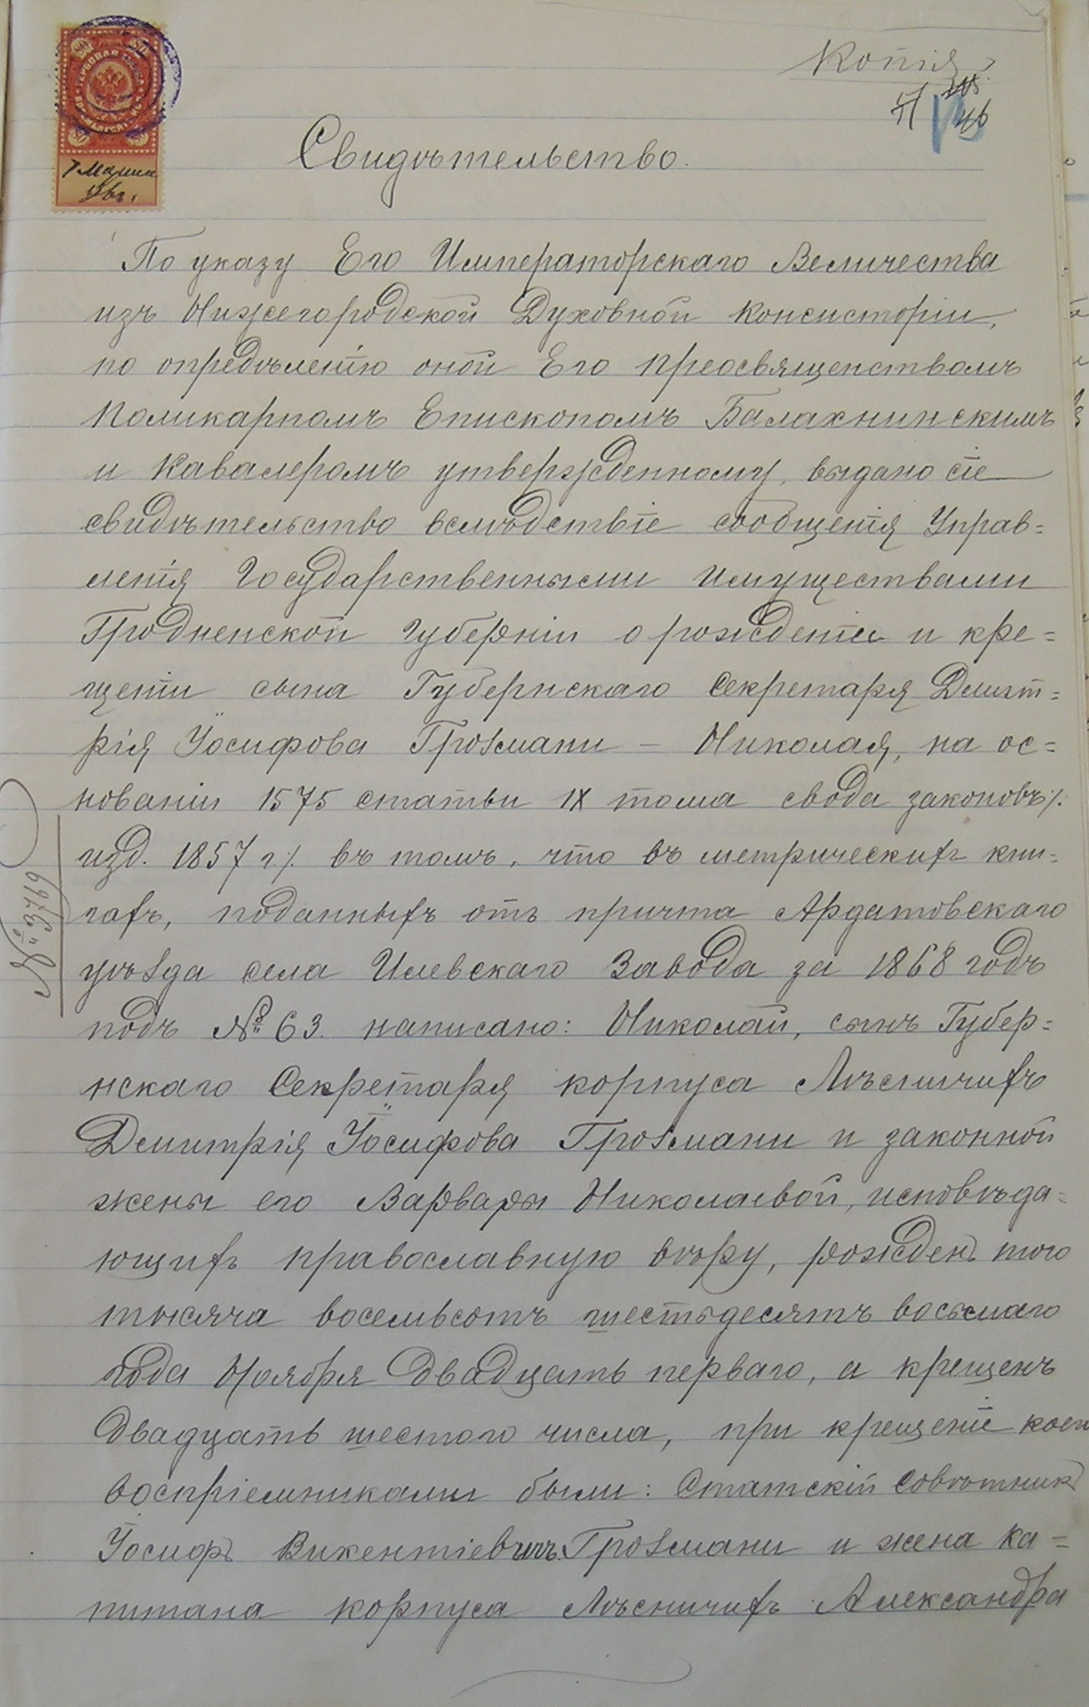 Копія
46
Свидѣтельство.
По указу Его Императорскаго Величества
изъ Нижегородской Духовной Консисторіи,
по опредѣленію оной Его Преосвященствомъ
Поликарпомъ Епископомъ Балахнинскимъ
и Кавалеромъ утвержденному, выдано сіе
свидѣтельство вслѣдствіе сообщенія Управ=
ленія Государственными Имуществами
Гродненской губерніи о рожденіи и кре=
щеніи сына Губернскаго Секретаря Дмит=
рія Іосифова Гроѕмани – Николая, на ос=
нованіи 1575 статьи IX тома свода законовъ /.
изд. 1857 г /. въ томъ, что въ метрическихъ кни=
гахъ, поданныхъ отъ причта Ардатовскаго
уѣѕда села Илевскаго Завода за 1868 годъ
подъ № 63. написано: Николай, сынъ Губер=
нскаго Секретаря корпуса Лѣсничихъ
Дмитрія Іосифова Гроѕмани и законной
жены его Варвары Николаевой, исповѣда=
ющихъ православную вѣру, рожденъ того
тысяча восемьсотъ шестьдесятъ восьмаго
года Ноября двадцать перваго, а крещенъ
двадцать шестого числа, при крещеніе коего
воспріемниками были: Статскій Совѣтникъ
Іосифъ Викентіевичъ Гроѕмани и жена Ка=
питана корпуса Лѣсничихъ Александра
№ 3769